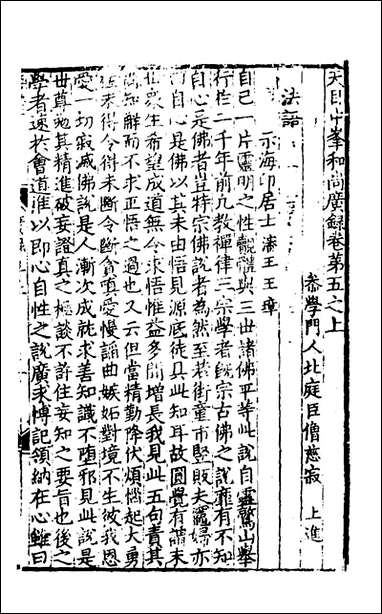 天目中峯和尚廣錄卷第五之上
叅學門人北庭臣僧慈寂　上進
法語
示海印居士　瀋王王璋
自己一片靈明之性軆與三世諸佛平等此說自靈鷲山舉
行於二千年前凡教禪律三宗學者旣宗古佛之說應有不知
自心是佛者豈特宗佛說者為然至若街童市竪販夫竈婦亦
自心是佛以其未由悟見源底徒具此知耳故圓覺有謂末
世衆生希望成道無令求悟惟益多聞增長我見此五句責其
尚知解而不求正悟之過也又云但當精勤降伏煩惱起大勇
未得令得未斷令斷貪瞋愛慢諂曲嫉妬對境不生彼我恩
愛一切寂滅佛說是人漸次成就求善知識不墮邪見此說是
世尊勉其精進破妄證真之極談不許住妄知之要旨也後之
學者速於會道准以即心自性之說廣求博記領納在心雖曰